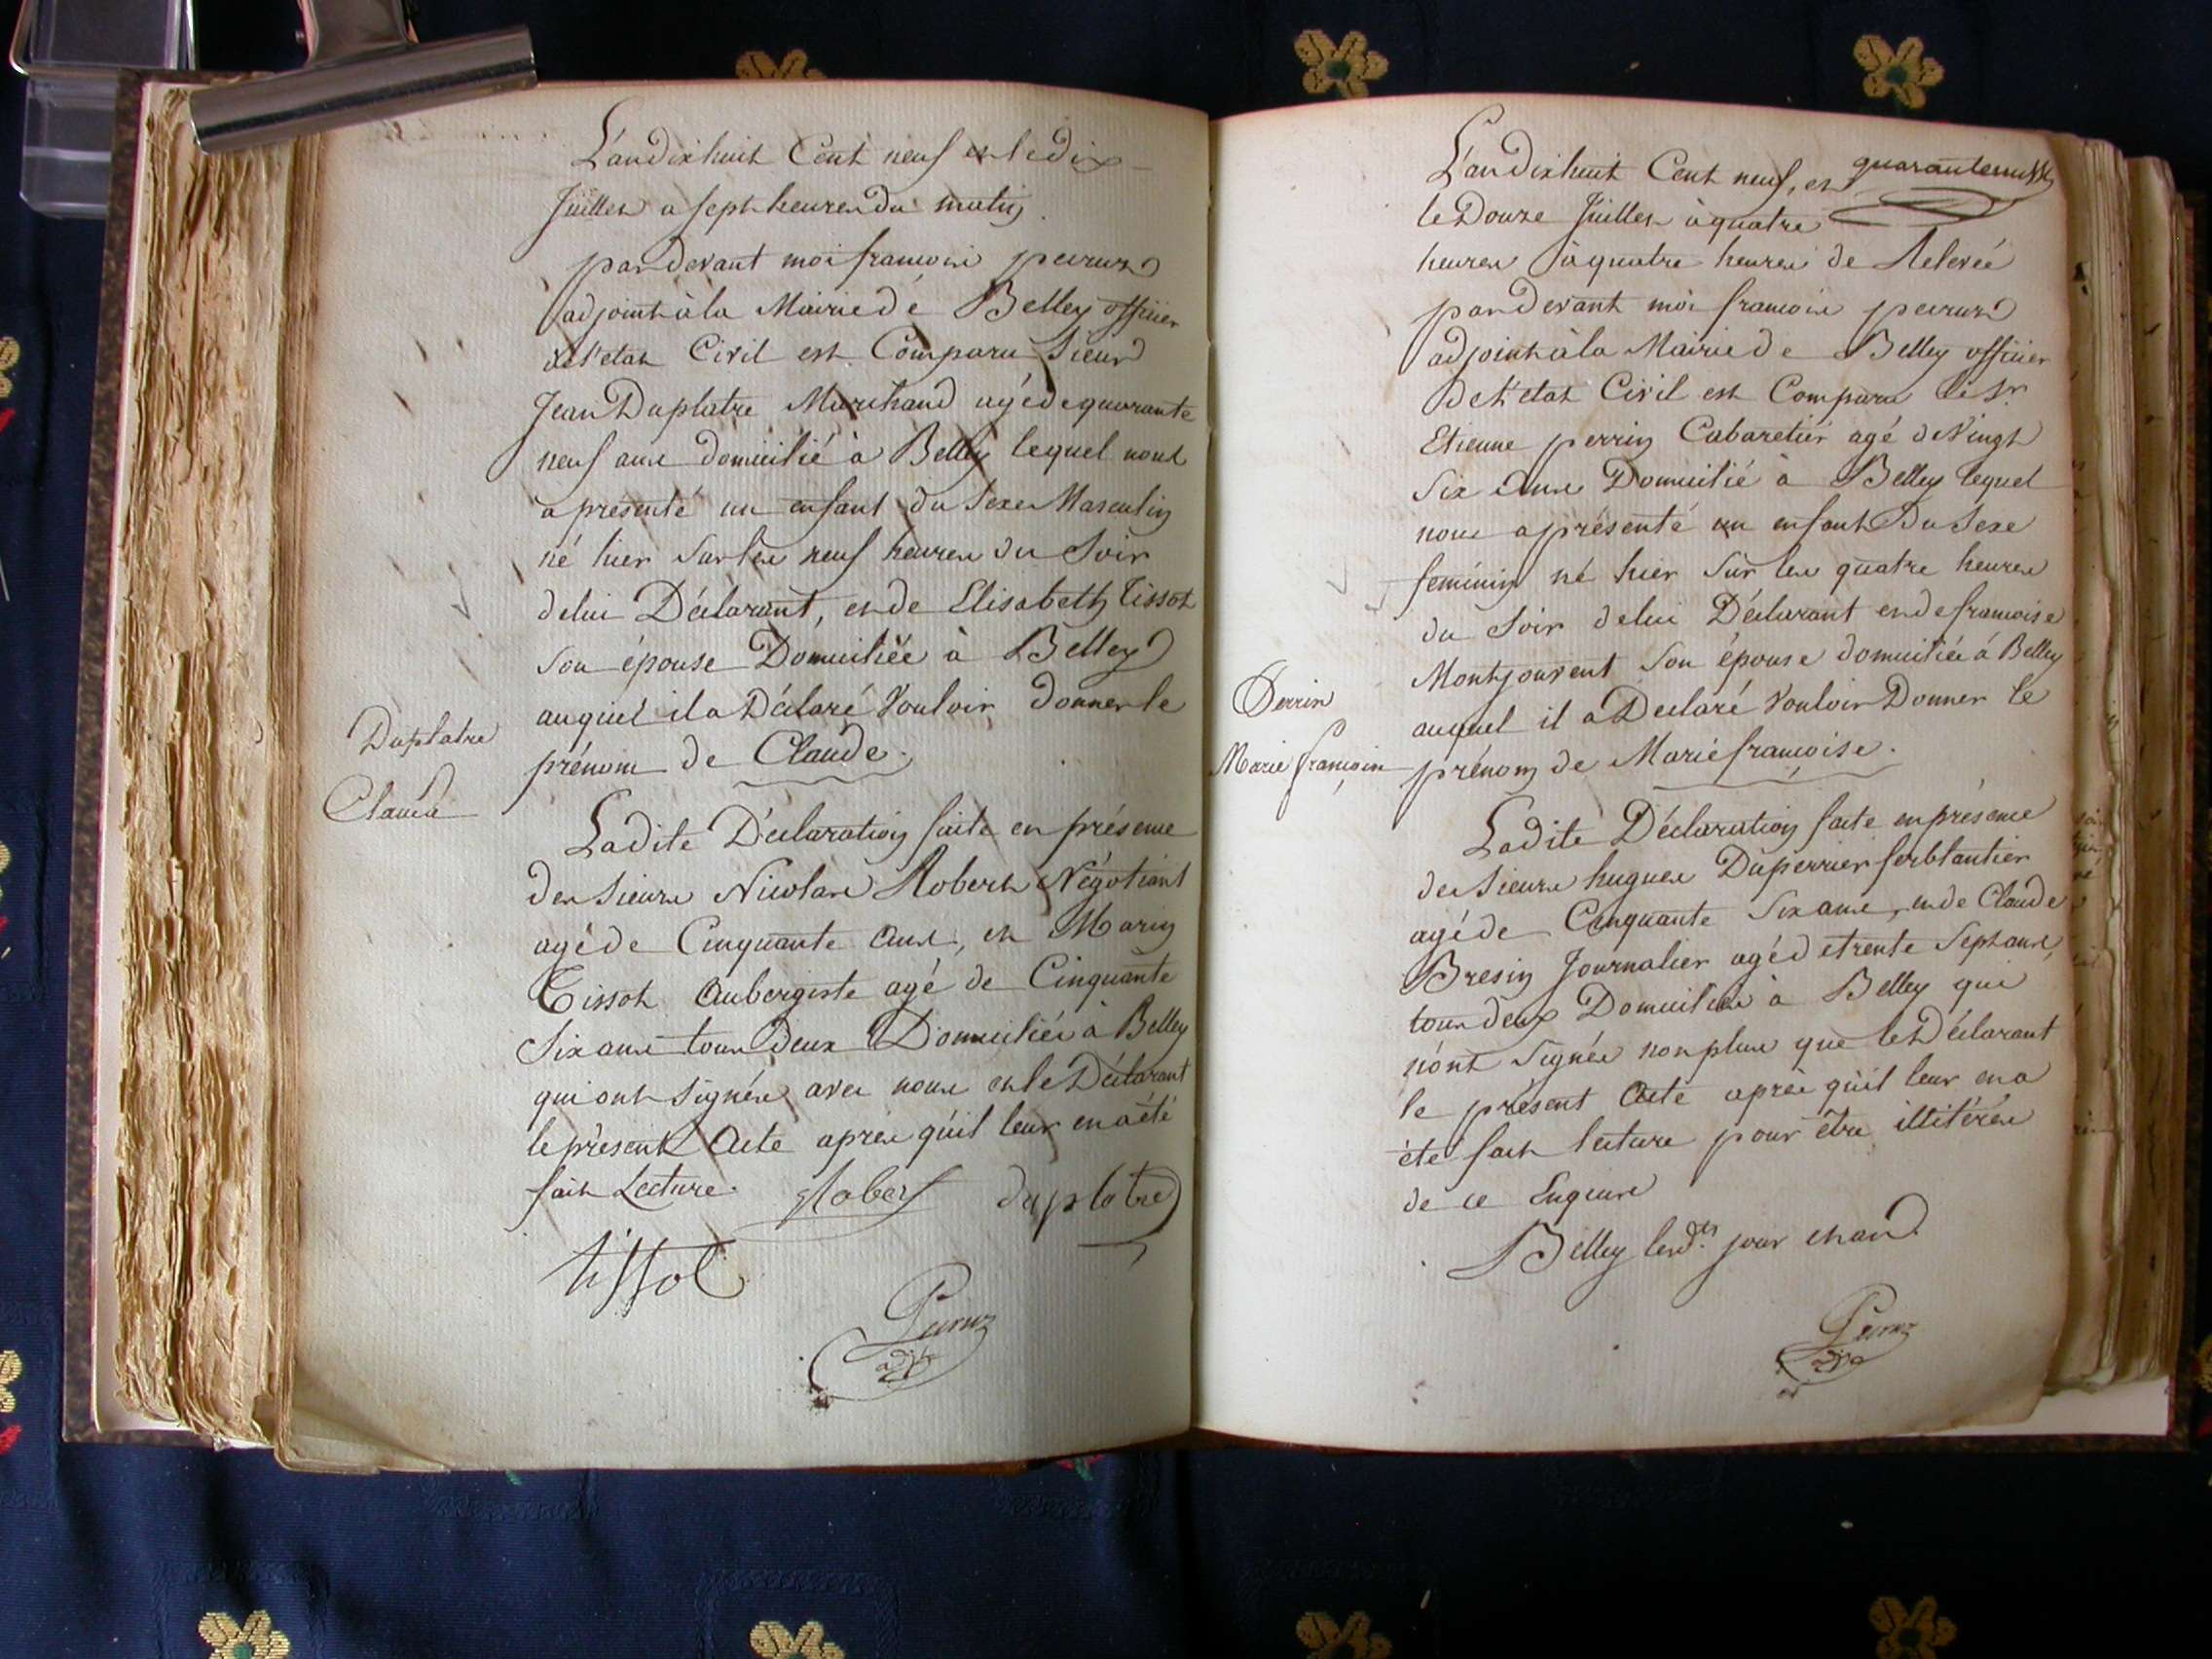 L'an dix huit Cent neuf et le dix
Juillet a sept heures du matin
par devant moi francois peuruz
adjoint à la Mairie de Belley officier
de l'etat Civil est Comparu Sieur
Jean Duplatre Marchand agé de quarante
neuf ans domicilié à Belley lequel nous
a presenté un enfant du Sexe Masculin
né hier Sur les neuf heures du Soir
de lui Déclarant, et de Elisabeth Tissot
Son épouse Domiciliée à Belley
auquel il a Déclaré Vouloir donner le
prénom de Claude.
Duplatre
Claude
Ladite Déclaration faite en présence
des Sieurs Nicolas Robert Négotiant
agé de Cinquante ans, et Marin
Tissot Aubergiste agé de Cinquante
Six ans tous deux Domiciliés à Belley
qui ont Signés avec nous et le Déclarant
le présent Acte apres qu'il leur en a été
fait Lecture.
Robert duplatre
tissot
Peuruz
adjt
quarante
L'an dix huit Cent neuf, et
le Douze Juillet à quatre
heures à quatre heures de Relevée
par devant moi francois peuruz
adjoint à la Mairie de Belley officier
de l'etat Civil est Comparu le Sr
Etienne perrin Cabaretier agé de Vingt
Six Ans Domicilié à Belley lequel
nous a présenté un enfant Du Sexe
feminin né hier Sur les quatre heures
du Soir de lui Déclarant et de francoise
Montjouvent Son épouse domiciliée à Belley
auquel il a Declaré Vouloir Donner le
prénom de Marie francoise.
Perrin
Marie francoise
Ladite Déclaration faite en présence
des Sieurs hugues Duperrier ferblantier
agé de Cinquante Six ans, et de Claude
Bresin Journalier agé de trente Sept ans,
tous deux Domiciliés à Belley qui
n'ont Signés non plus que le Déclarant
le présent Acte après qu'il leur en a
été fait lecture pour être illitérés
de ce Enquis
Belley les dts jour et an
Peuruz
adjt